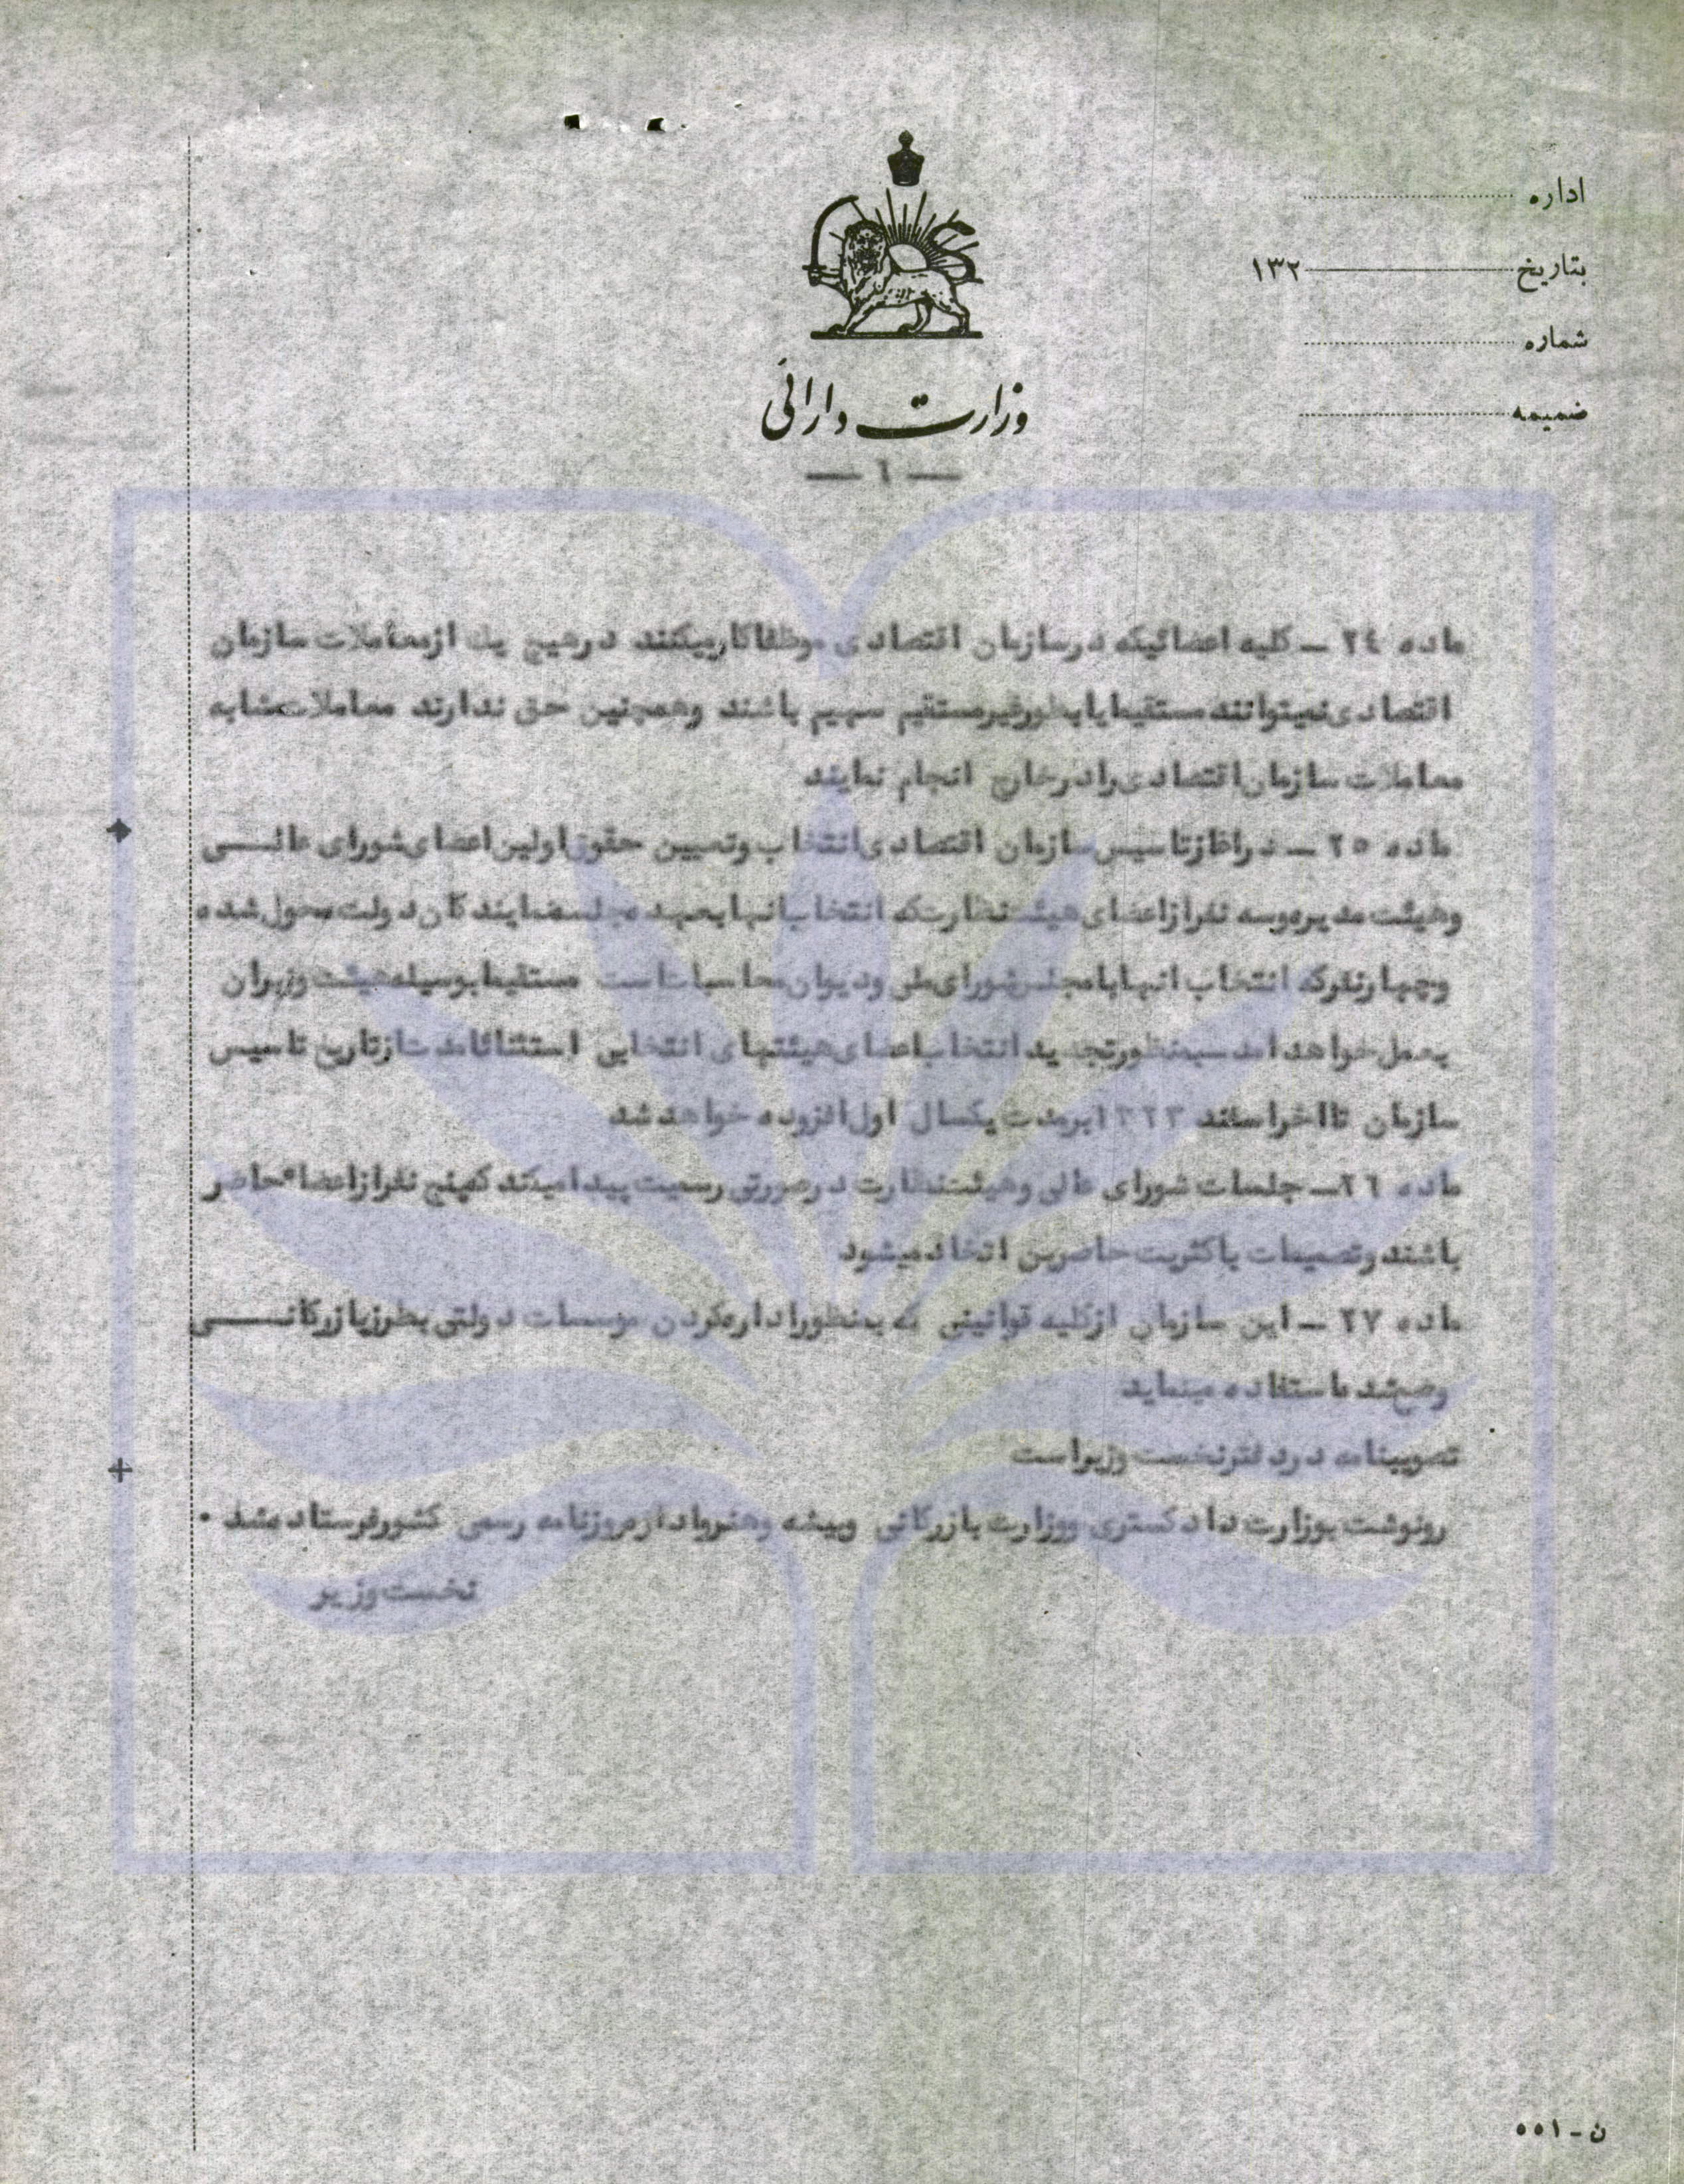 اداره
بتاریخ ۱۳۲
شماره
ضمیمه
وزارت دارائی
— ٦ —
ماده ۲٤ – کلیه اعضائیکه درسازمان اقتصادی موظفا کارمیکنند درهیچ یك ازمعاملات سازمان
اقتصادی نمیتوانند مستقیما یا بطورغیرمستقیم سهیم باشند وهمچنین حق ندارند معاملات مشابه
معاملات سازمان اقتصادی را درخارج انجام نمایند
ماده ۲٥ – دراغاز تاسیس سازمان اقتصادی انتخاب وتعیین حقوق اولین اعضای شورای عالـــی
وهیئت مدیره وسه نفر ازاعضای هیئت نظارت که انتخاب انها بعهد مجلس نمایند کان دولت محول شده
وچهارنفرکه انتخاب انها با مجلس شورای ملی ودیوان محاسبات است مستقیما بوسیله هیئت وزیران
بعمل خواهد امد سبمنظور تجدید انتخاب اعضای هیئتهای انتخابی استثنائا مدت ازتاریخ تاسیس
سازمان تا اخر اسفند ۱۳۲۳ برمدت یکسال اول افزوده خواهد شد
ماده ۲٦ – جلسات شورای عالی وهیئت نظارت درصورتی رسمیت پیدا میکند که پنج نفر ازاعضاء حاضر
باشند وتصمیمات باکثریت حاضرین اتخاذ میشود
ماده ۲۷ – این سازمان ازکلیه قوانینی که بمنظور اداره کردن موسسات دولتی بطرز بازرکانـــی
وضع شده استفاده مینماید
تصویبنامه دردفتر نخست وزیر است
رونوشت بوزارت دادکستری ووزارت بازرکانی وپیشه وهنر واداره روزنامه رسمی کشور فرستاده شد .
نخست وزیر
ن - ٥٥۱